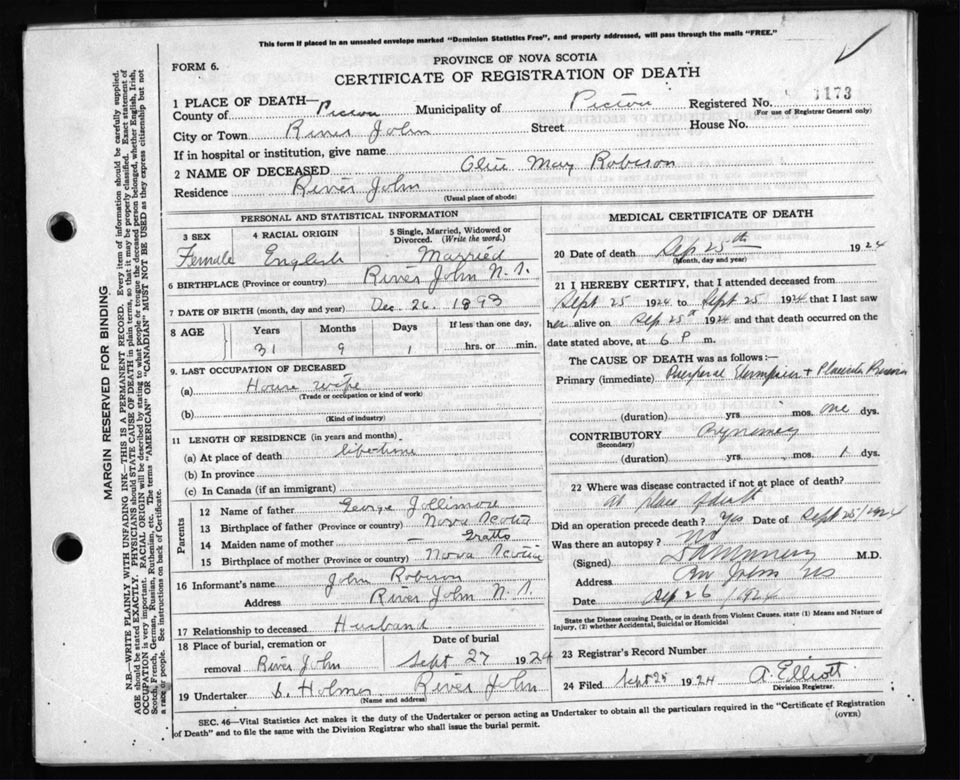 This form if placed in an unsealed envelope marked "Dominion Statistics Free", and properly addressed, will pass through the mails "FREE."
PROVINCE OF NOVA SCOTIA
FORM 6.
CERTIFICATE OF REGISTRATION OF DEATH
1 PLACE OF DEATH— County of Pictou Municipality of Pictou Registered No. 1173
(For use of Registrar General only)
City or Town River John Street House No.
If in hospital or institution, give name
2 NAME OF DECEASED Alice Mary Robeson
Residence River John
(Usual place of abode)
PERSONAL AND STATISTICAL INFORMATION
3 SEX 4 RACIAL ORIGIN 5 Single, Married, Widowed or Divorced. (Write the word.)
Female English Married
6 BIRTHPLACE (Province or country) River John N.S.
7 DATE OF BIRTH (month, day and year) Dec. 26. 1893
8 AGE Years Months Days If less than one day,
31 9 1 hrs. or min.
9. LAST OCCUPATION OF DECEASED
(a) House wife
(Trade or occupation or kind of work)
(b)
(Kind of industry)
11 LENGTH OF RESIDENCE (in years and months)
(a) At place of death life-time
(b) In province
(c) In Canada (if an immigrant)
Parents
12 Name of father George Jollimore
13 Birthplace of father (Province or country) Nova Scotia
14 Maiden name of mother — Gratto
15 Birthplace of mother (Province or country) Nova Scotia
16 Informant's name John Robeson
Address River John N.S.
17 Relationship to deceased Husband
18 Place of burial, cremation or removal River John
Date of burial Sept 27 1924
19 Undertaker D. Holmes River John
(Name and address)
MEDICAL CERTIFICATE OF DEATH
20 Date of death Sep 25th 1924
(Month, day and year)
21 I HEREBY CERTIFY, that I attended deceased from
Sept 25 1924 to Sept 25 1924 that I last saw
her alive on Sep 25th 1924 and that death occurred on the
date stated above, at 6 P m.
The CAUSE OF DEATH was as follows:—
Primary (immediate) Puerperal + Placenta
(duration) yrs. mos. one dys.
CONTRIBUTORY
(Secondary)
(duration) yrs. mos. 1 dys.
22 Where was disease contracted if not at place of death?
at place of death
Did an operation precede death? Yes Date of Sept 25/1924
Was there an autopsy? No
(Signed) M.D.
Address River John NS
Date Sep 26 1924
State the Disease causing Death, or in death from Violent Causes, state (1) Means and Nature of
Injury, (2) whether Accidental, Suicidal or Homicidal
23 Registrar's Record Number
24 Filed Sept 25 1924 A. Elliott
Division Registrar.
SEC. 46—Vital Statistics Act makes it the duty of the Undertaker or person acting as Undertaker to obtain all the particulars required in the "Certificate of Registration
of Death" and to file the same with the Division Registrar who shall issue the burial permit. (OVER)
MARGIN RESERVED FOR BINDING
N.B—WRITE PLAINLY WITH UNFADING INK—THIS IS A PERMANENT RECORD. Every item of information should be carefully supplied.
AGE should be stated EXACTLY. PHYSICIANS should STATE CAUSE OF DEATH in plain terms, so that it may be properly classified. Exact statement of
OCCUPATION is very important. RACIAL ORIGIN will be described by stating to what people & tongue the deceased person belonged, whether English, Irish,
Scotch, French, German, Russian, Ruthenian, etc. The terms "AMERICAN" or "CANADIAN" MUST NOT BE USED as they express citizenship but not
a race or people. See instructions on back of Certificate.